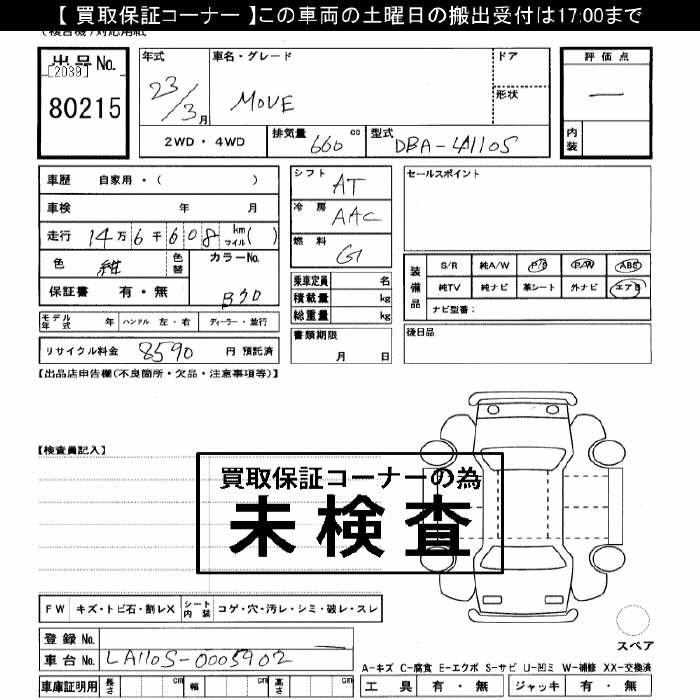 【 買取保証コーナー 】この車両の土曜日の搬出受付は17:00まで
出品No. [2039] 80215
年式 23/3月 車名・グレード MOVE ドア 形状
評価点 — 内装
2WD・4WD 排気量 660 cc 型式 DBA-LA110S
車歴 自家用・( )
車検 年 月
走行 14万6千608 km マイル( )
色 紺 色替 カラーNo. B70
保証書 有・無
モデル年式 年 ハンドル 左・右 ディーラー・並行
リサイクル料金 8590 円 預託済
シフト AT
冷房 AAC
燃料 G
乗車定員 名
積載量 kg
総重量 kg
書類期限 月 日
セールスポイント
装備品 S/R 純A/W P/S P/W ABS
純TV 純ナビ 革シート 外ナビ エアB
ナビ型番:
後日品
【出品店申告欄(不良箇所・欠品・注意事項等)】
【検査員記入】
買取保証コーナーの為
未検査
FW キズ・トビ石・割レX シート内装 コゲ・穴・汚レ・シミ・破レ・スレ
登録No.
車台No. LA110S-0005902
車庫証明用 長さ cm 幅 cm 高さ cm
スペア
A-キズ C-腐食 E-エクボ S-サビ U-凹ミ W-補修 XX-交換済
工具 有・無 ジャッキ 有・無